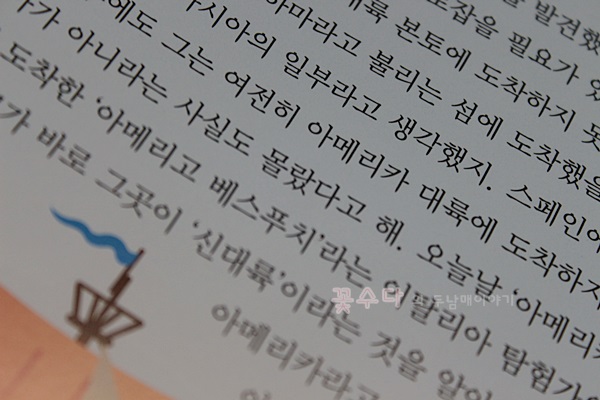 을 발견했
도착을 필요가 있
대륙 본토에 도착하지 못
하마라고 불리는 섬에 도착했을
아시아의 일부라고 생각했지. 스페인에
에도 그는 여전히 아메리카 대륙에 도착하지
가 아니라는 사실도 몰랐다고 해. 오늘날 ‘아메리카
도착한 ‘아메리고 베스푸치’라는 이탈리아 탐험가
가 바로 그곳이 ‘신대륙’이라는 것을 알아
아메리카라고
꽃수다 의 두남매이야기